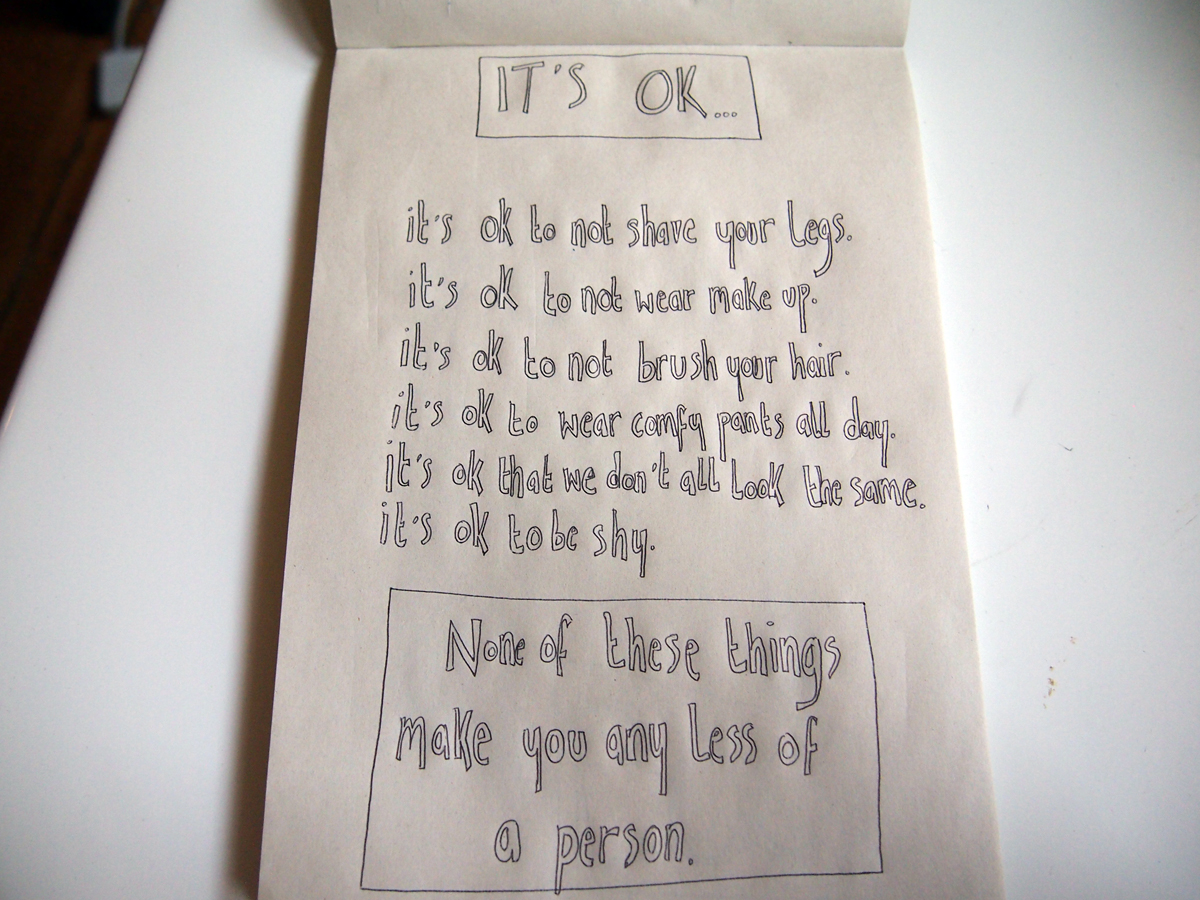 IT'S OK...
it's ok to not shave your legs.
it's ok to not wear make up.
it's ok to not brush your hair.
it's ok to wear comfy pants all day.
it's ok that we don't all look the same.
it's ok to be shy.
None of these things
make you any less of
a person.